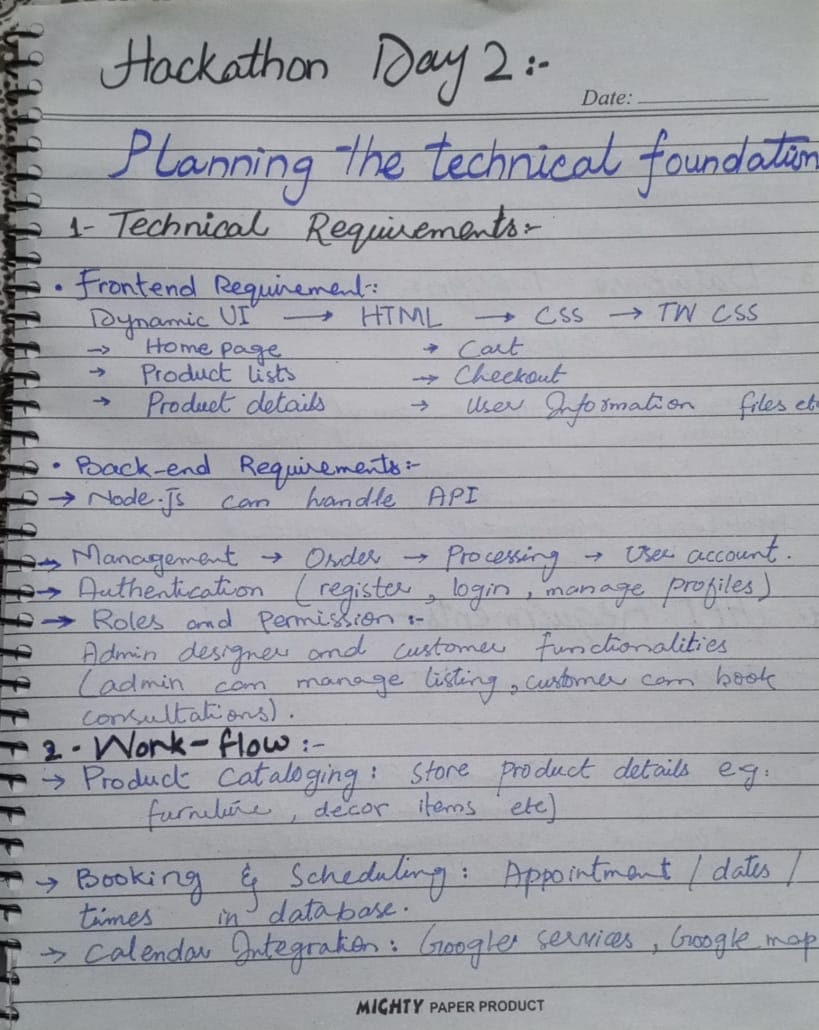 Hackathon Day 2 :-
Date:
Planning the technical foundation
1- Technical Requirements:-
• Frontend Requirement:-
Dynamic UI → HTML → CSS → TW CSS
→ Home page → Cart
→ Product lists → Checkout
→ Product details → User Information files etc
• Back-end Requirements:-
→ Node.js can handle API
→ Management → Order → Processing → User account.
→ Authentication (register, login, manage profiles)
→ Roles and Permission :-
Admin designer and customer functionalities
(admin can manage listing, customer can book
consultations).
2. Work-flow :-
→ Product Cataloging : Store product details eg:
furneture, decor items etc)
→ Booking & Scheduling : Appointment / dates /
times in database.
→ Calendar Integration : Googler services, Google map
MIGHTY PAPER PRODUCT